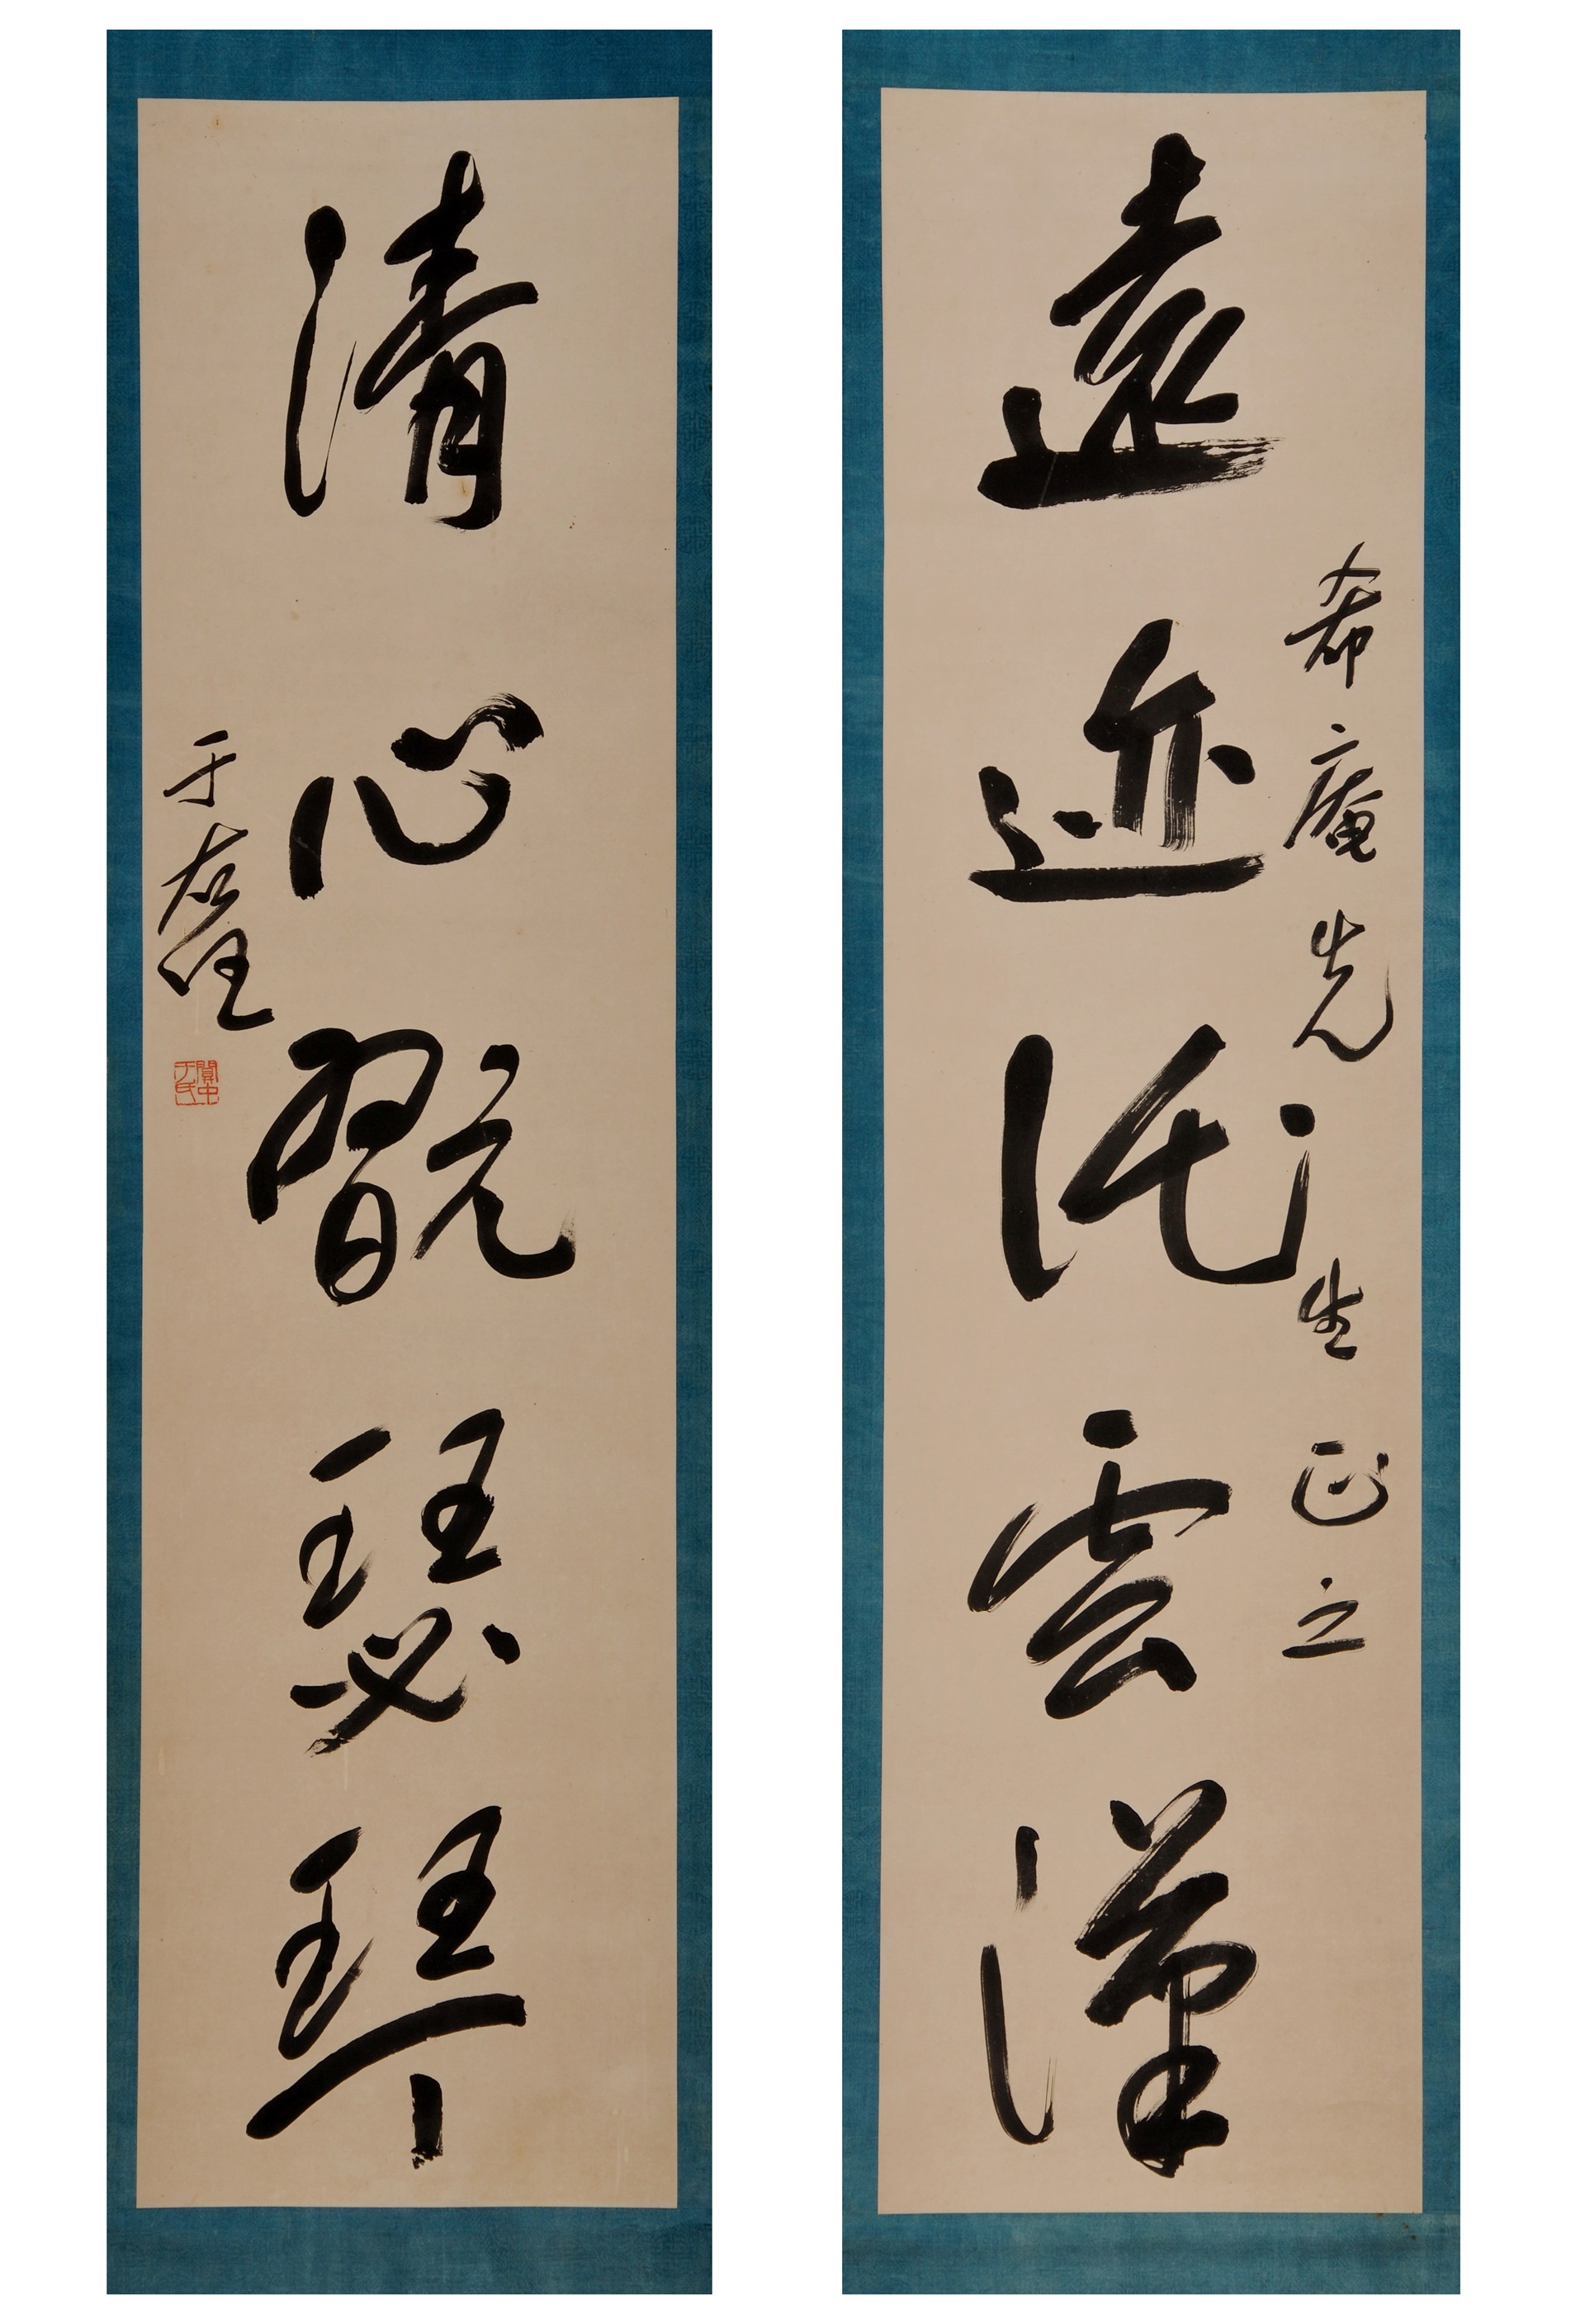 希庵先生正之
遠迹託雲漢
清心翫瑟琴
于右任
關中于氏